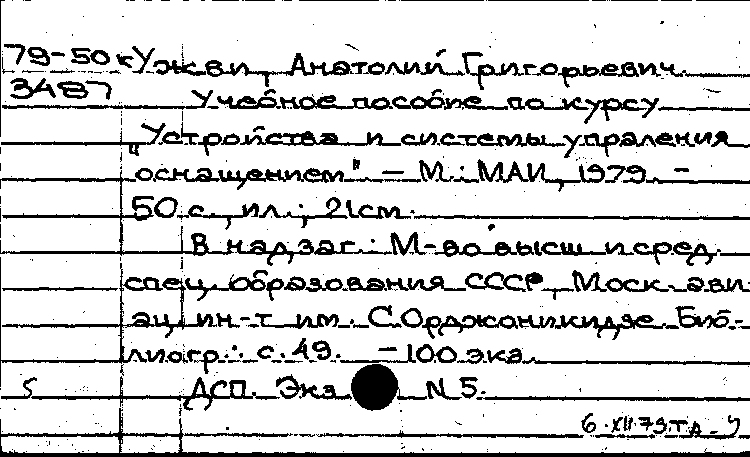 79-50к Ужви, Анатолий Григорьевич.
3487 Учебное пособие по курсу
„Устройства и системы упраления
оснащением" – М.: МАИ, 1979. –
50 с., ил.; 21см.
В надзаг.: М-во высш и сред.
спец. образования СССР, Моск. ави
ац. ин-т им. С.Орджоникидзе. Биб-
лиогр.: с.49. – 100 экз.
5 ДСП. Экз N 5.
6.XII.79.